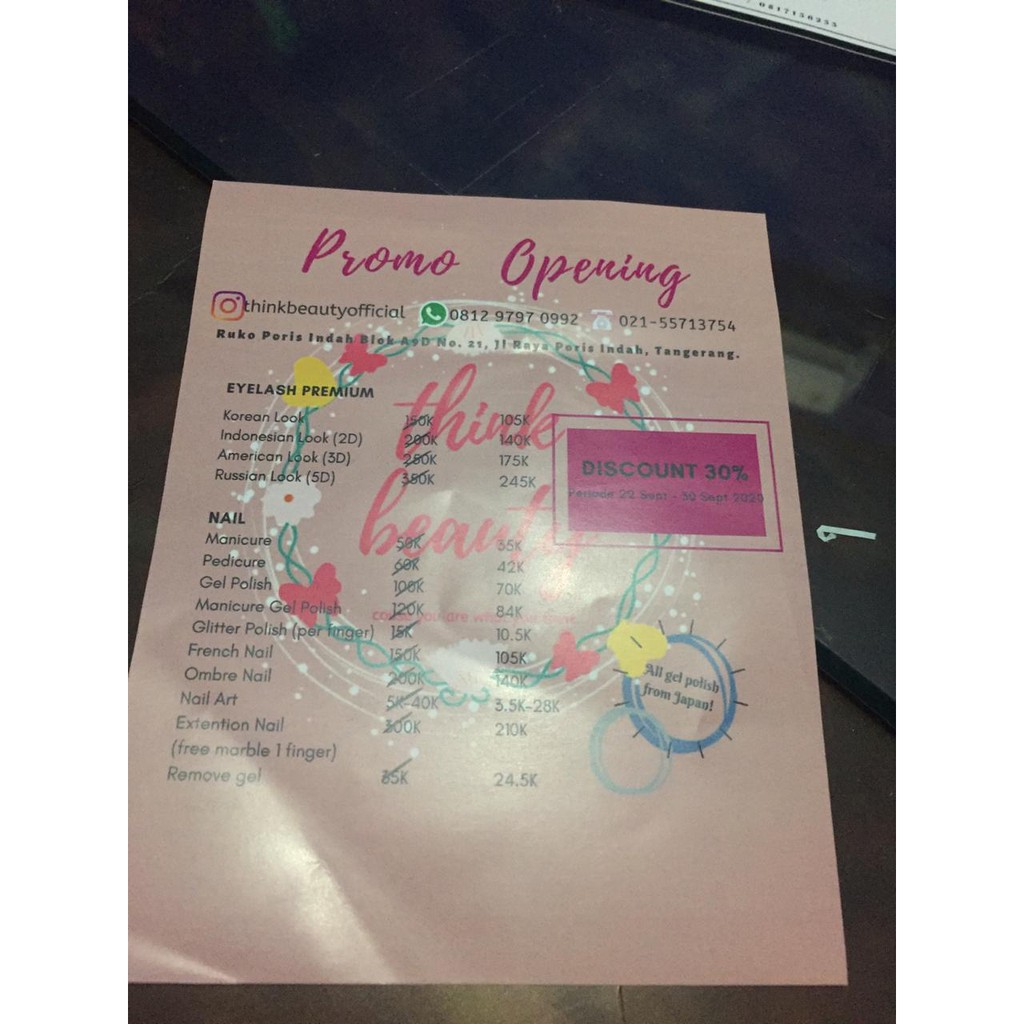 0817158255
Promo Opening
thinkbeautyofficial 0812 9797 0992 021-55713754
Ruko Poris Indah Blok A9D No. 21, Jl Raya Poris Indah, Tangerang.
think
beauty
EYELASH PREMIUM
Korean Look 150K 105K
Indonesian Look (2D) 200K 140K
American Look (3D) 250K 175K
Russian Look (5D) 350K 245K
DISCOUNT 30%
Periode 22 Sept - 30 Sept 2020
NAIL
Manicure 50K 35K
Pedicure 60K 42K
Gel Polish 100K 70K
Manicure Gel Polish 120K 84K
you are what you
Glitter Polish (per finger) 15K 10.5K
French Nail 150K 105K
Ombre Nail 200K 140K
Nail Art 5K-40K 3.5K-28K
Extention Nail 300K 210K
(free marble 1 finger)
Remove gel 35K 24.5K
All gel polish
from Japan!